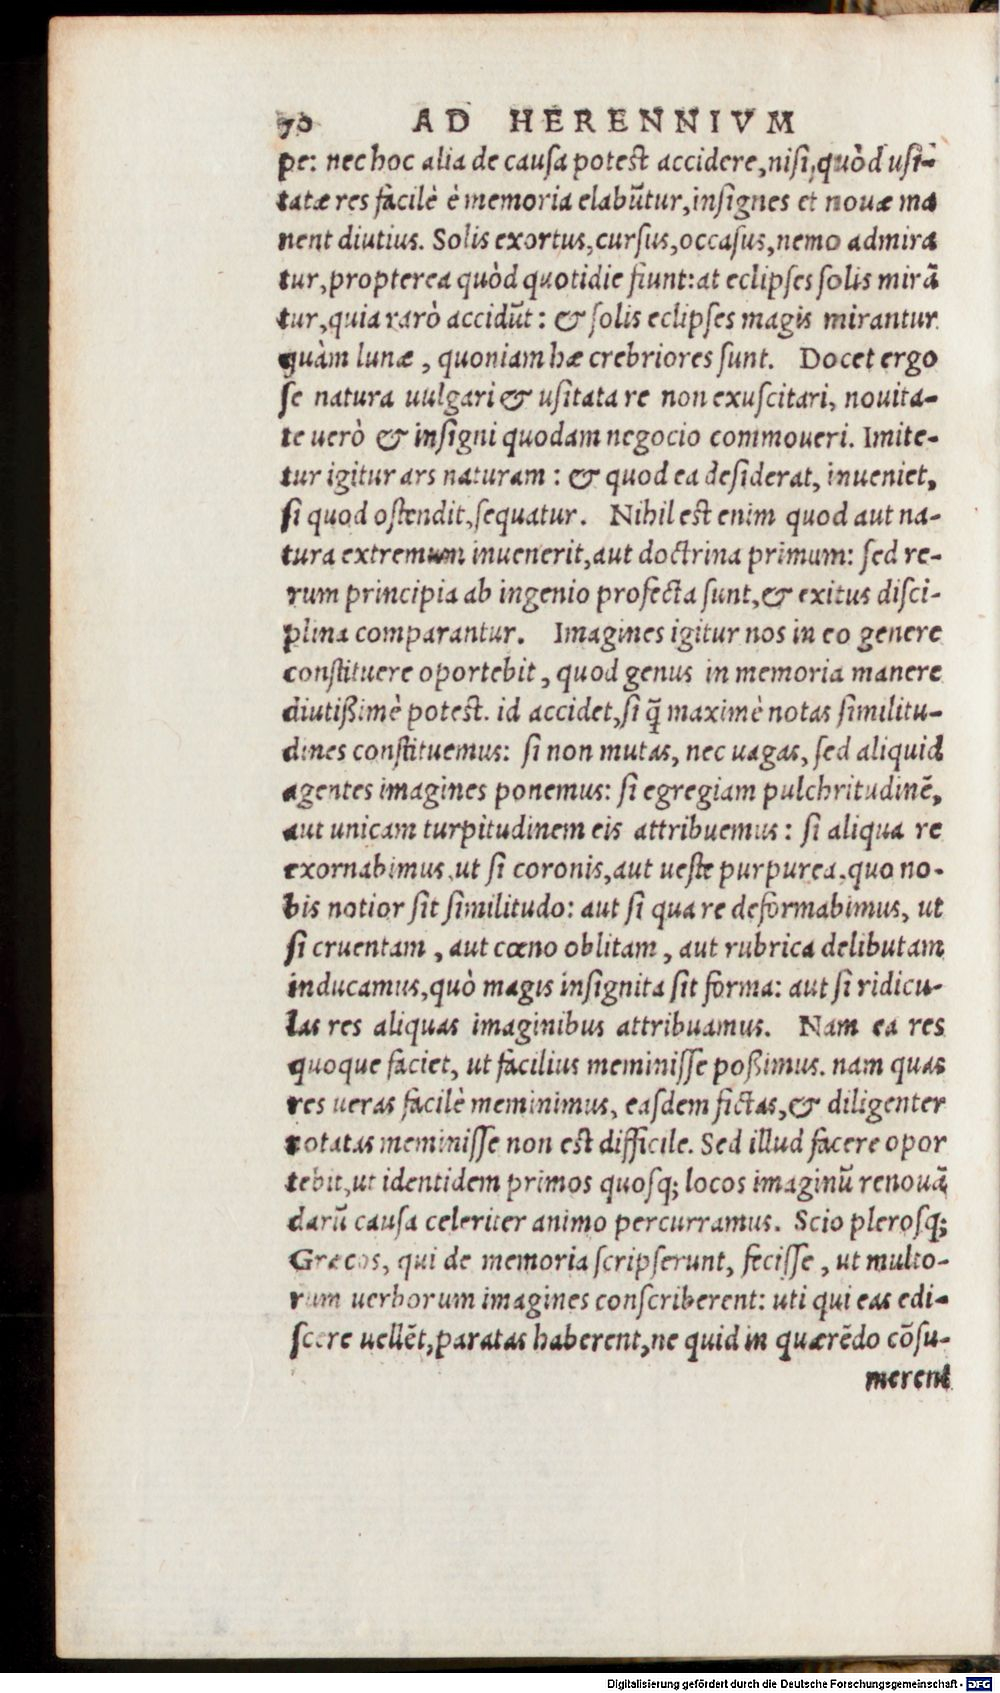 70 AD HERENNIVM
pe: nec hoc alia de causa potest accidere, nisi, quòd usi-
tatæ res facilè è memoria elabũtur, insignes et nouæ ma
nent diutius. Solis exortus, cursus, occasus, nemo admira
tur, propterea quòd quotidie fiunt: at eclipses solis mirã
tur, quia rarò accidũt: & solis eclipses magis mirantur
quàm lunæ, quoniam hæ crebriores sunt. Docet ergo
se natura uulgari & usitata re non exuscitari, nouita-
te uerò & insigni quodam negocio commoueri. Imite-
tur igitur ars naturam: & quod ea desiderat, inueniet,
si quod ostendit, sequatur. Nihil est enim quod aut na-
tura extremum inuenerit, aut doctrina primum: sed re-
rum principia ab ingenio profecta sunt, & exitus disci-
plina comparantur. Imagines igitur nos in eo genere
constituere oportebit, quod genus in memoria manere
diutißimè potest. id accidet, si q̃ maximè notas similitu-
dines constituemus: si non mutas, nec uagas, sed aliquid
agentes imagines ponemus: si egregiam pulchritudinẽ,
aut unicam turpitudinem eis attribuemus: si aliqua re
exornabimus, ut si coronis, aut ueste purpurea, quo no-
bis notior sit similitudo: aut si qua re deformabimus, ut
si cruentam, aut cœno oblitam, aut rubrica delibutam
inducamus, quò magis insignita sit forma: aut si ridicu-
las res aliquas imaginibus attribuamus. Nam ea res
quoque faciet, ut facilius meminisse poßimus. nam quas
res ueras facilè meminimus, easdem fictas, & diligenter
notatas meminisse non est difficile. Sed illud facere opor
tebit, ut identidem primos quosq; locos imaginũ renouã
darũ causa celeriter animo percurramus. Scio plerosq;
Græcos, qui de memoria scripserunt, fecisse, ut multo-
rum uerborum imagines conscriberent: uti qui eas edi-
scere uellẽt, paratas haberent, ne quid in quærẽdo cõsu-
merent
Digitalisierung gefördert durch die Deutsche Forschungsgemeinschaft - DFG